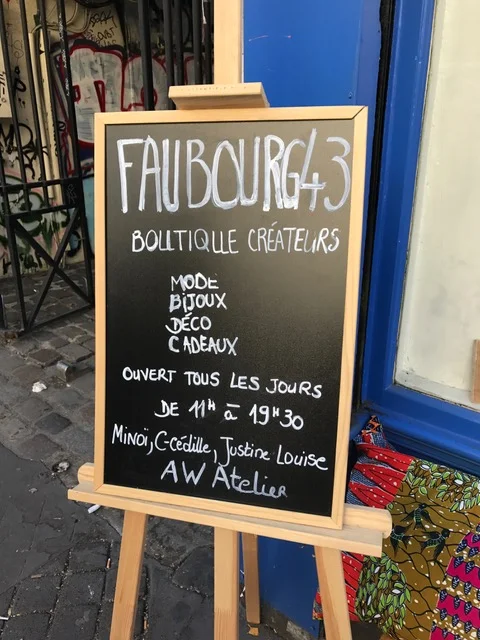 FAUBOURG43
BOUTIQUE CRÉATEURS
MODE
BIJOUX
DÉCO
CADEAUX
OUVERT TOUS LES JOURS
DE 11H à 19H30
Minoï, C-cédille, Justine Louise
AW Atelier